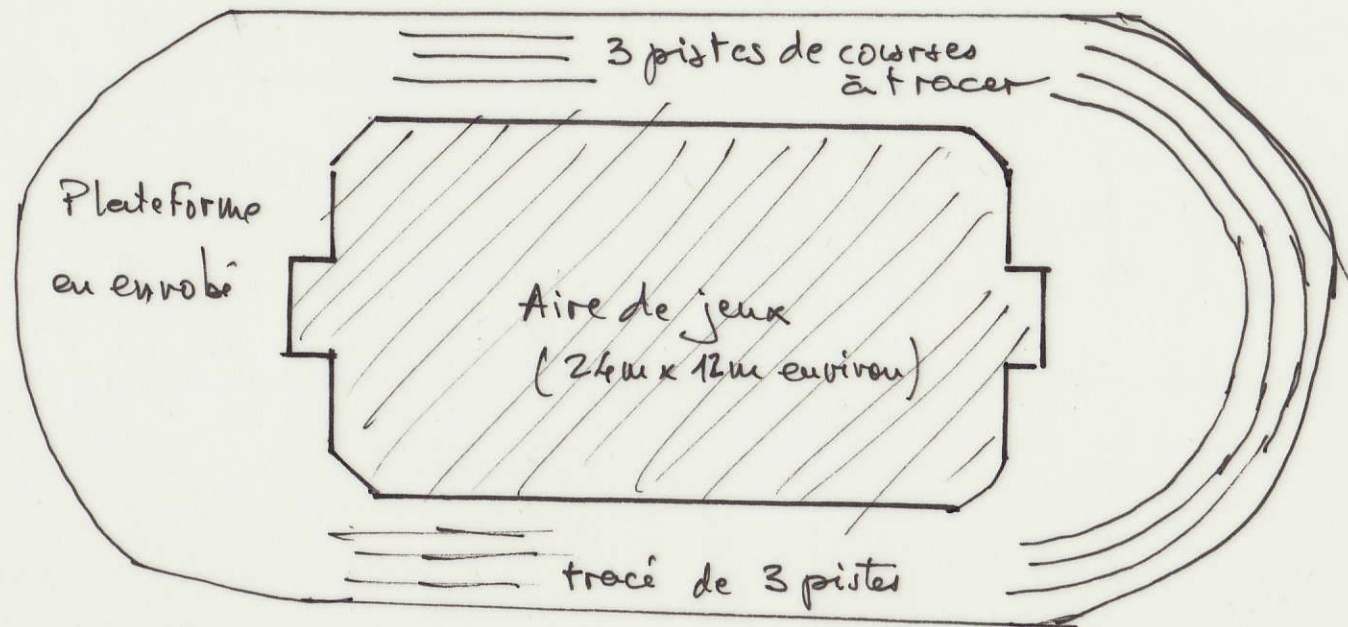 3 pistes de courses
à tracer
Plateforme
en enrobé
Aire de jeux
(24m x 12m environ)
tracé de 3 pistes